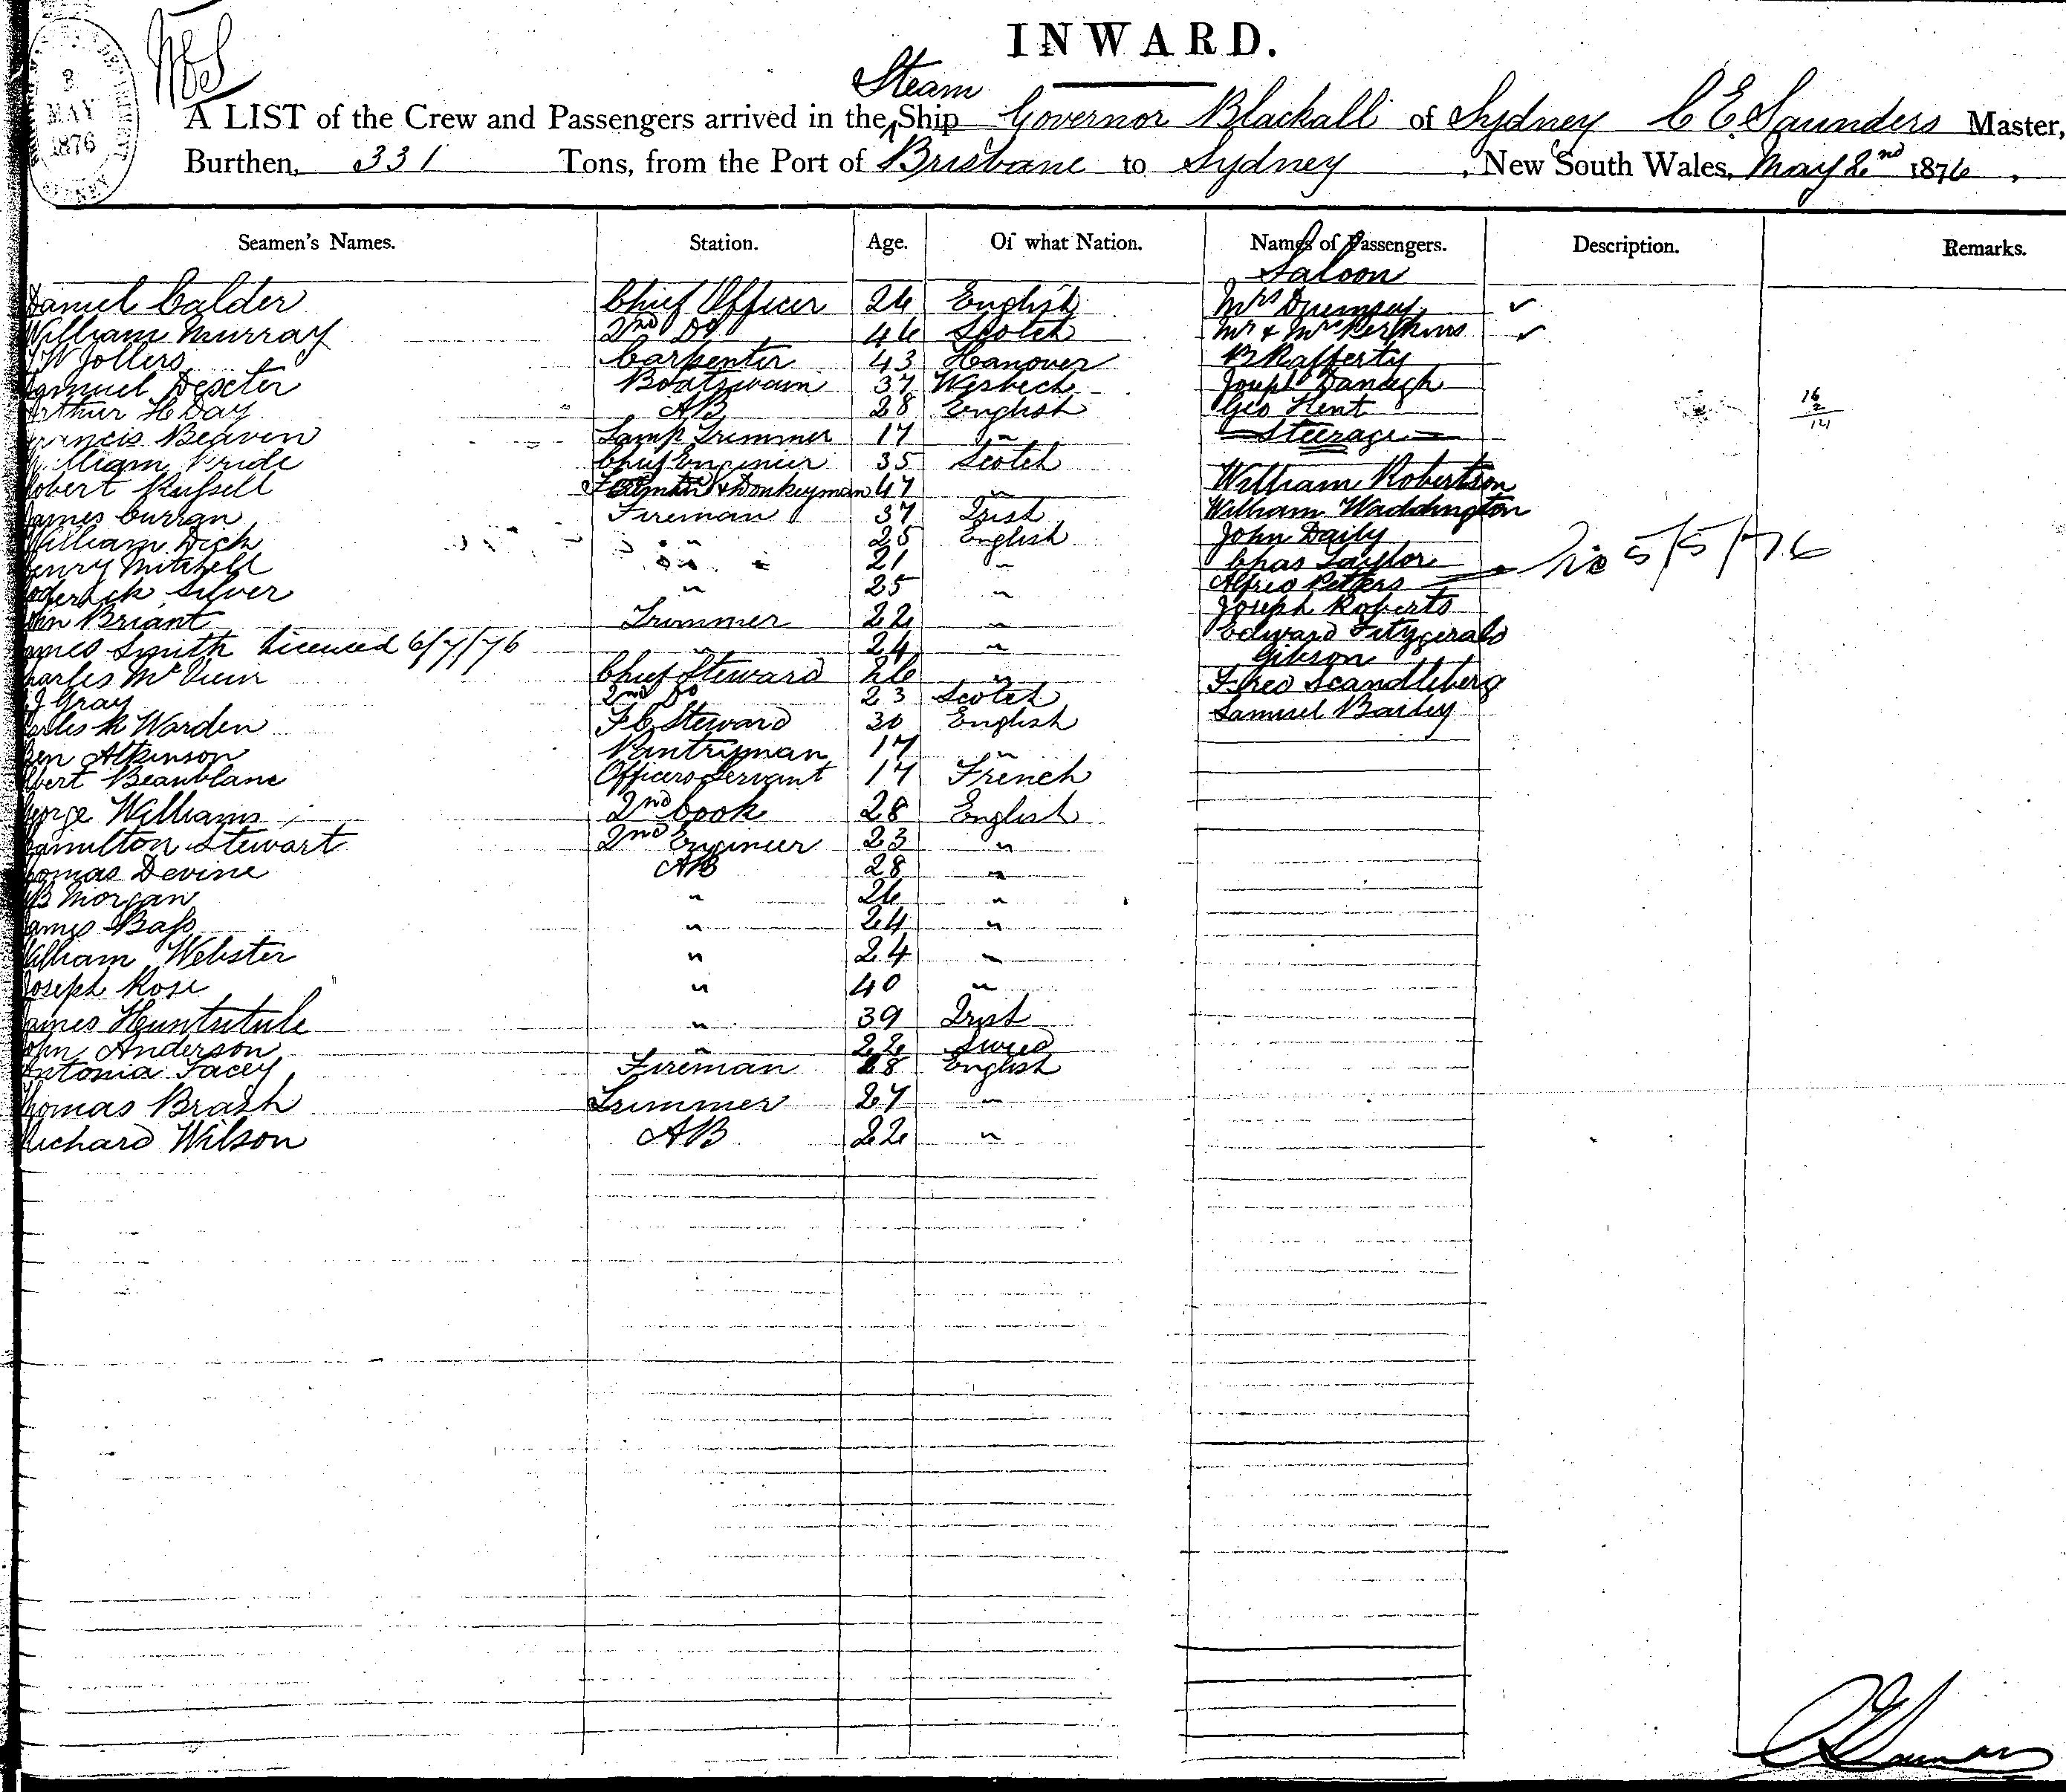 INWARD.
3
MAY
1876
A LIST of the Crew and Passengers arrived in the Steam Ship Governor Blackall of Sydney C E Saunders Master,
Burthen, 331 Tons, from the Port of Brisbane to Sydney, New South Wales, May 2nd 1876.
Seamen's Names. Station. Age. Of what Nation. Names of Passengers. Description. Remarks.
Saloon
Daniel Calder Chief Officer 26 English Mrs
William Murray 2nd Do 46 Scotch Mr & Mrs Perkins
W Jollers Carpenter 43 Hanover B Rafferty
Samuel Dexter Boatswain 37 Wisbech Joseph
Arthur H Day AB 28 English Geo Kent
Francis Beaven Lamp Trimmer 17 " Steerage
William Pride Chief Engineer 35 Scotch
Robert Russell & Donkeyman 47 " William Robertson
James Curran Fireman 37 Irish William Waddington
William Dick " 25 English John Daily
Henry Mitchell " 21 " Chas Taylor
Roderick Silver " 25 " Alfred Petters 5/5/76
John Briant Trimmer 22 " Joseph Roberts
James Smith Licenced 6/7/76 " 24 " Edward Fitzgerald
Gibson
Charles Mc Chief Steward 26 " Fred Scandleberg
J Gray 2nd Do 23 Scotch Samuel Bailey
Charles R Warden F C Steward 30 English
Ben Atkinson Pantryman 17 "
Albert Beaublanc Officers Servant 17 French
George Williams 2nd Cook 28 English
Hamilton Stewart 2nd Engineer 23 "
Thomas Devine AB 28 "
B Morgan " 26 "
James Bass " 24 "
William Webster " 24 "
Joseph Rose " 40 "
James " 39 Irish
John Anderson " 22 Swed
Antonia Facey Fireman 28 English
Thomas Brash Trimmer 27 "
Richard Wilson AB 22 "